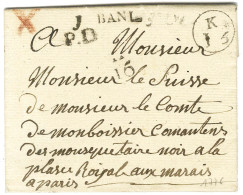 J
P.D
BANL
K
15
A Monsieur
Monsieur le Suisse
de monsieur le Comte
de monboissier comantens
des mousquetaire noir a la
plase Roiyale aux marais
a paris